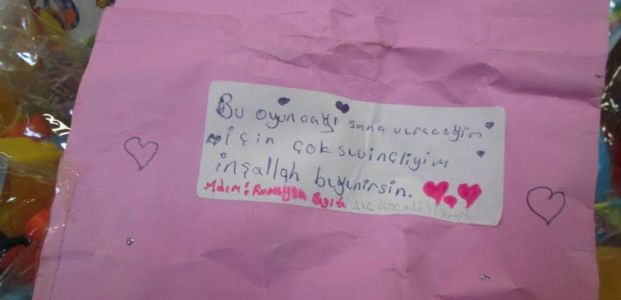 Bu oyuncağı sana vereceğim
için çok sevinçliyim
inşallah beğenirsin.
Adım: